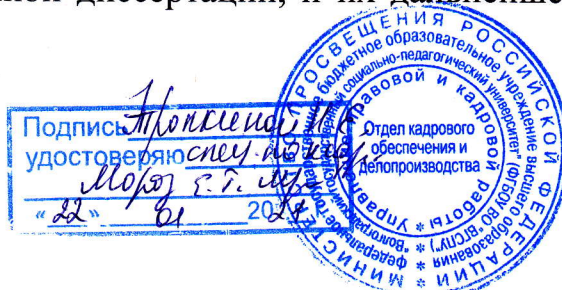 ной диссертации, и их дальнейше
Подпись Тропкиной И.
удостоверяю спец.
Мороз Е.Т.
«22» 01 20
МИНИСТЕРСТВО ПРОСВЕЩЕНИЯ РОССИЙСКОЙ ФЕДЕРАЦИИ
федеральное государственное бюджетное образовательное учреждение высшего образования
"Волгоградский государственный социально-педагогический университет" (ФГБОУ ВО "ВГСПУ")
Управление правовой и кадровой работы
Отдел кадрового
обеспечения и
делопроизводства